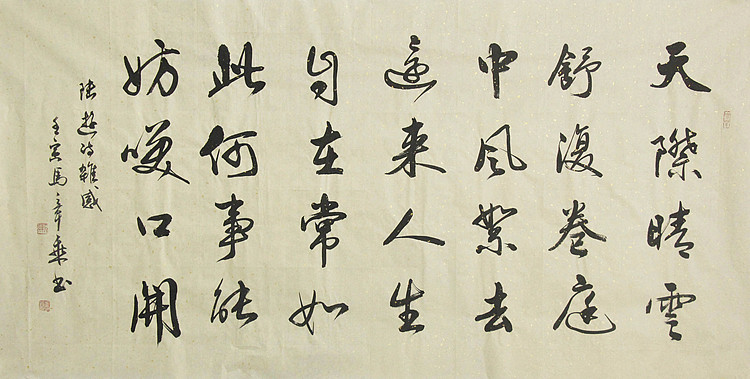 天際晴雲
舒復卷庭
中風絮去
還來人生
自在常如
此何事能
妨咲口開
陸遊詩雜感
壬寅馬章乘书